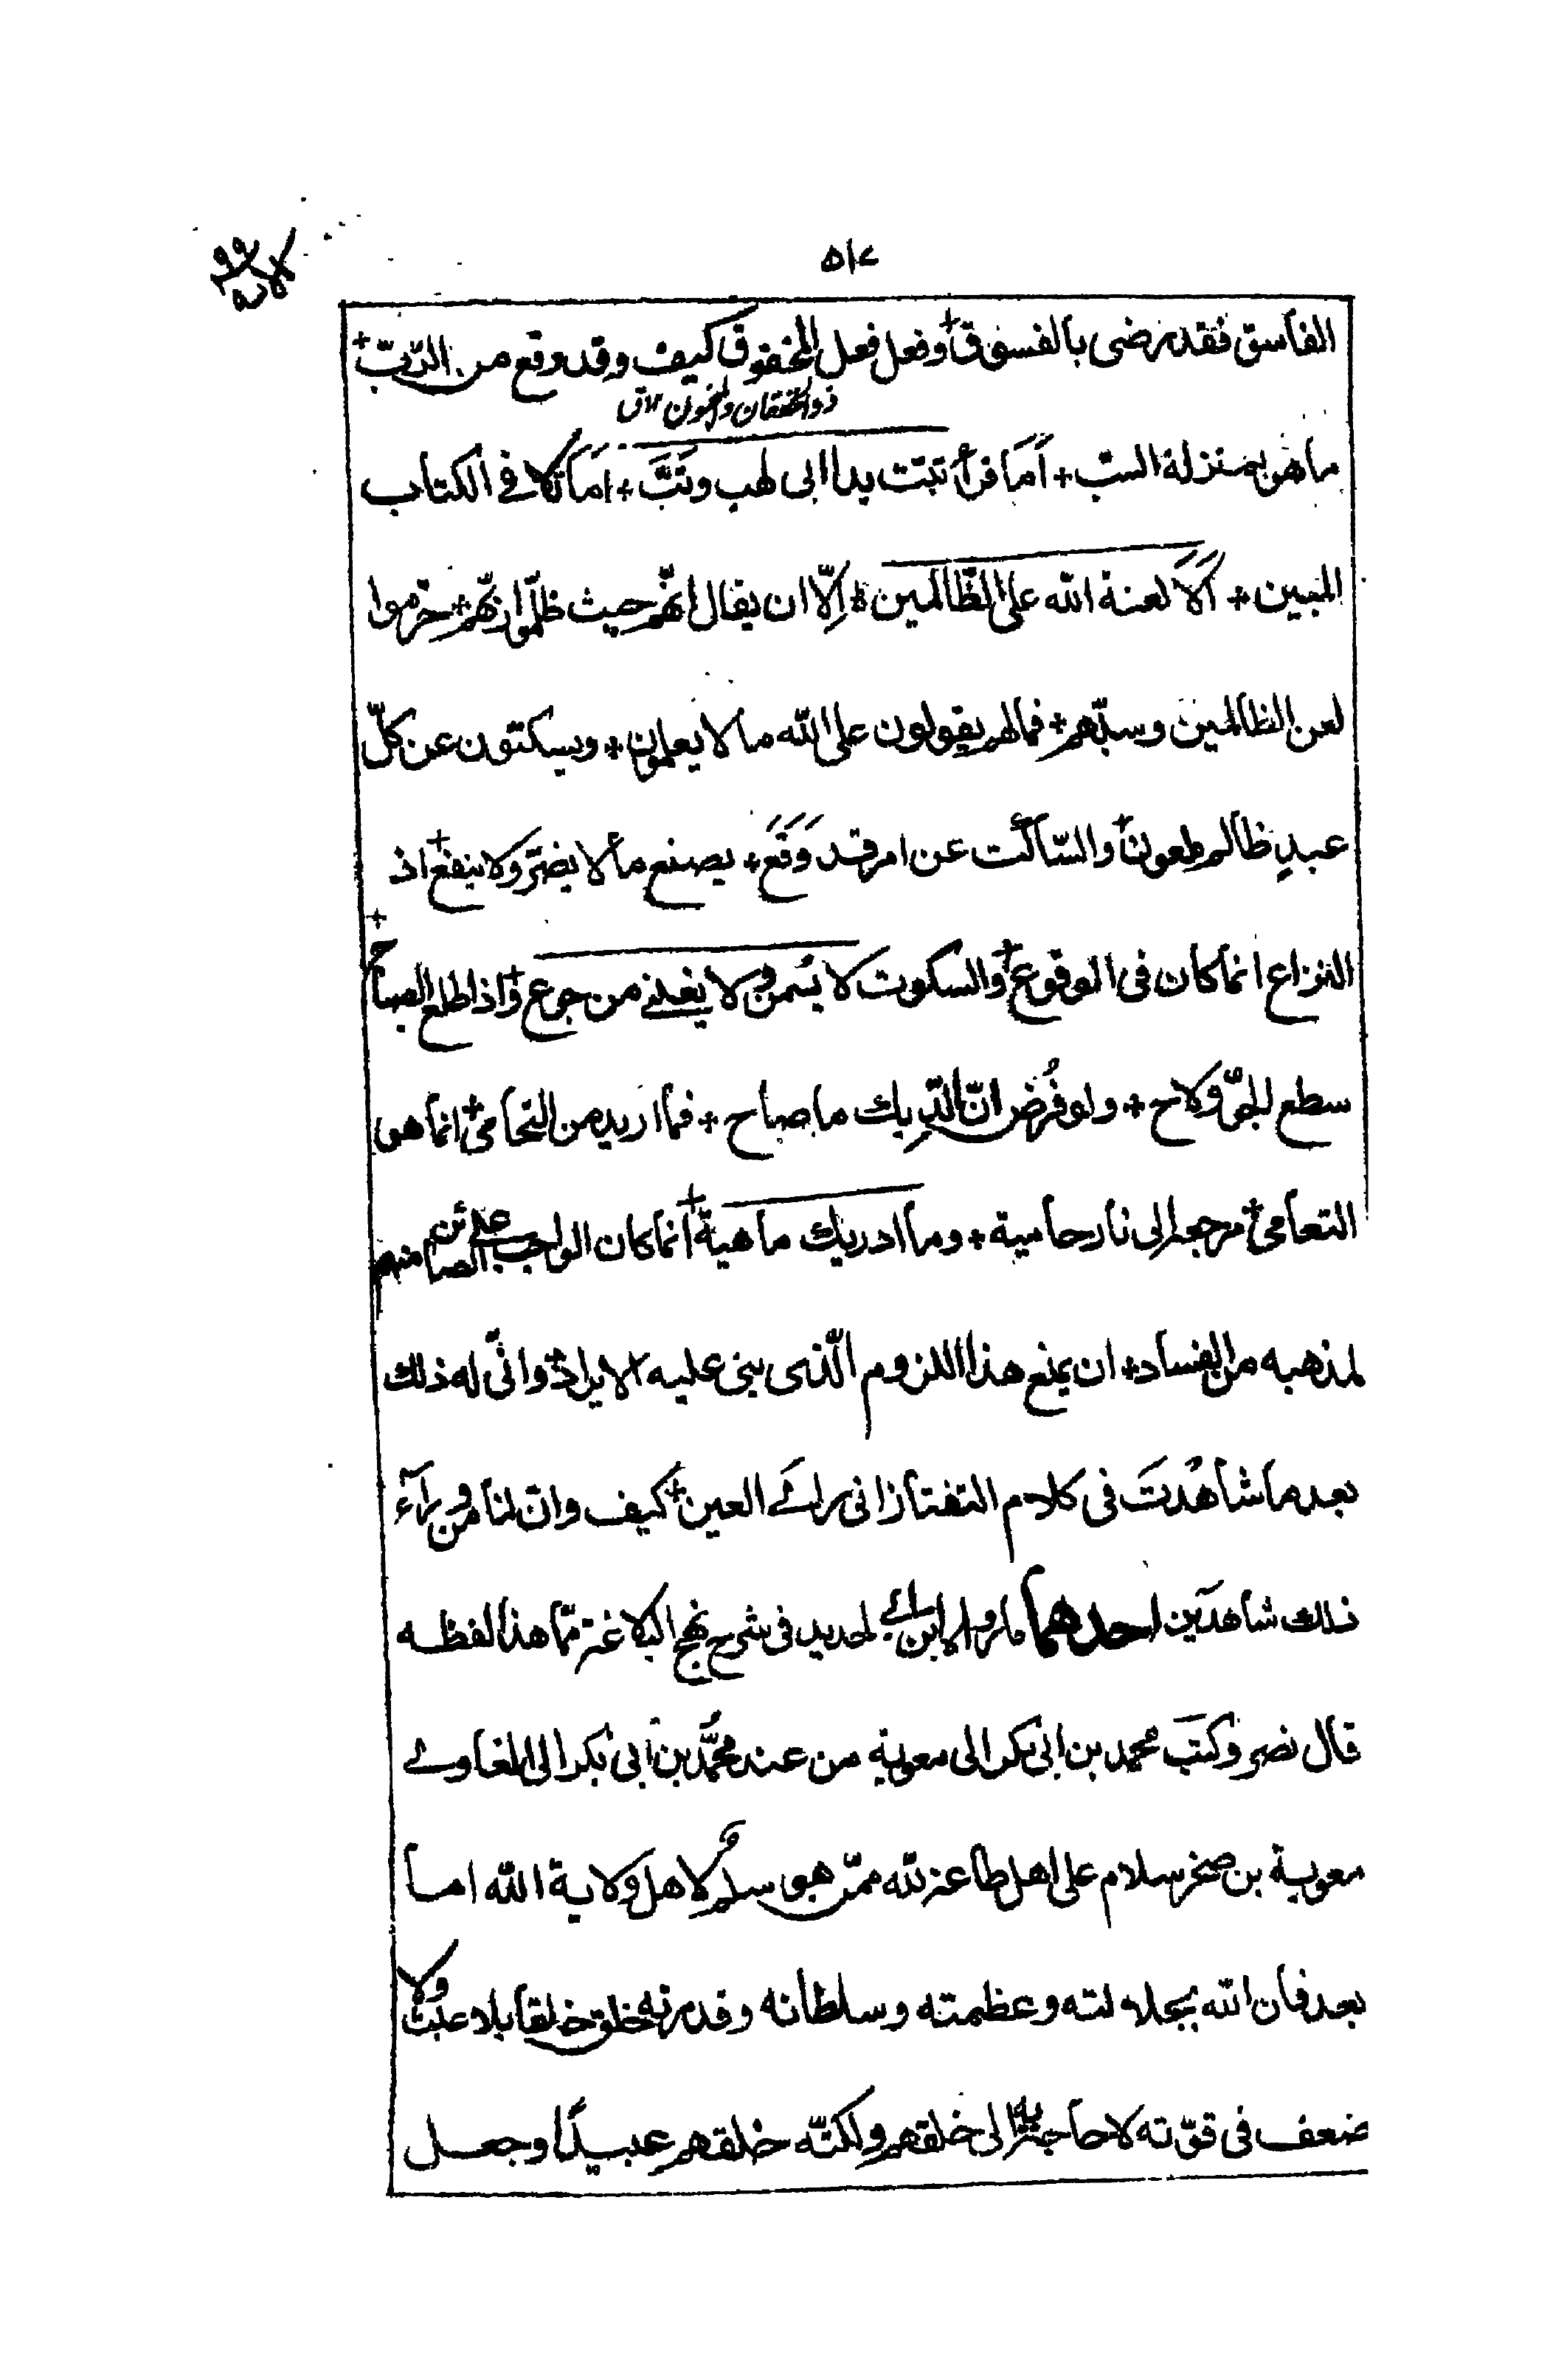 ۵۱۷
الفاسق فقد رضی بالفسوق + وفعل فعل المخفوق کیف وقد وقع من الرّبّ +
ذو الخفقان والمجنون ق
ما هو بمنزلة السبّ + اَمَا قرأ تبّت یدا ابی لهب وتَبَّ + اَمَا تلا فے الکتاب
المبین + اَلَا لعنة الله علی الظّالمین + اِلّا ان یقال انّهم حیث ظلموا ربّهم + حرّموا
لعن الظالمین وسبّهم + فما لهم یقولون علی الله ما لا یعلمون + ویسکتون عن کلّ
عبدٍ ظالم ملعون + والسّاکت عن امر قد وَقَعَ + یصنع ما لا یضرّ ولا ینفع + اذ
النزاع انما کان فی الوقوع + والسکوت لا یُسمن ولا یغنے من جوع + واذا طلع الصباح +
سطع للجوّ ولاح + ولو فُرض انّ الدّیک ما صاح + فما ارید من التحامی + انما هو
التعامی + مرجعه الی نار حامیة + وما ادریک ماهیة + انما کان الواجب علے الصائن منهم
لمذهبه من الفساد + ان یمنع هذا اللزوم الّذی بنی علیه الایراد + وانّی له ذلک
بعد ما شاهدتَ فی کلام التفتازانی رائے العین + کیف وانّ لنا من وراء
ذلک شاهدین احدهما ما رواه ابن ابے الحدید فی شرح نهج البلاغة ممّا هذا لفظه
قال نصر وکتب محمد بن ابی بکر الی معویة من عند محمّد بن ابی بکر الی الغاوے
معویة بن صخر سلام علی اهل طاعة لله ممّن هو سلم لاهل ولایة الله اما
بعد فان الله بجلالته وعظمته وسلطانه وقدرته خلق خلقا بلا عبث ولا
ضعف فی قوّته لا حاجة به الی خلقهم ولکنّه خلقهم عبیدًا وجعل